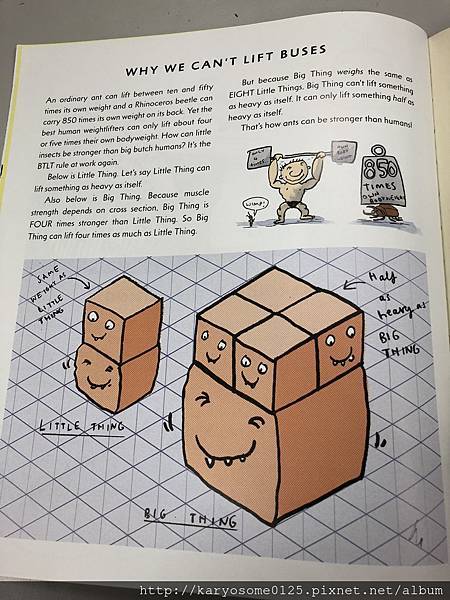 WHY WE CAN'T LIFT BUSES
An ordinary ant can lift between ten and fifty
times its own weight and a Rhinoceros beetle can
carry 850 times its own weight on its back. Yet the
best human weightlifters can only lift about four
or five times their own bodyweight. How can little
insects be stronger than big butch humans? It's the
BTLT rule at work again.
Below is Little Thing. Let's say Little Thing can
lift something as heavy as itself.
Also below is Big Thing. Because muscle
strength depends on cross section, Big Thing is
FOUR times stronger than Little Thing. So Big
Thing can lift four times as much as Little Thing.
But because Big Thing weighs the same as
EIGHT Little Things. Big Thing can't lift something
as heavy as itself. It can only lift something half as
heavy as itself.
That's how ants can be stronger than humans!
WIMP!
850
TIMES
OWN
BODYWEIGHT
SAME
WEIGHT AS
LITTLE
THING
LITTLE THING
Half
as
heavy as
BIG
THING
BIG THING
http://karyosome0125.pixnet.net/album